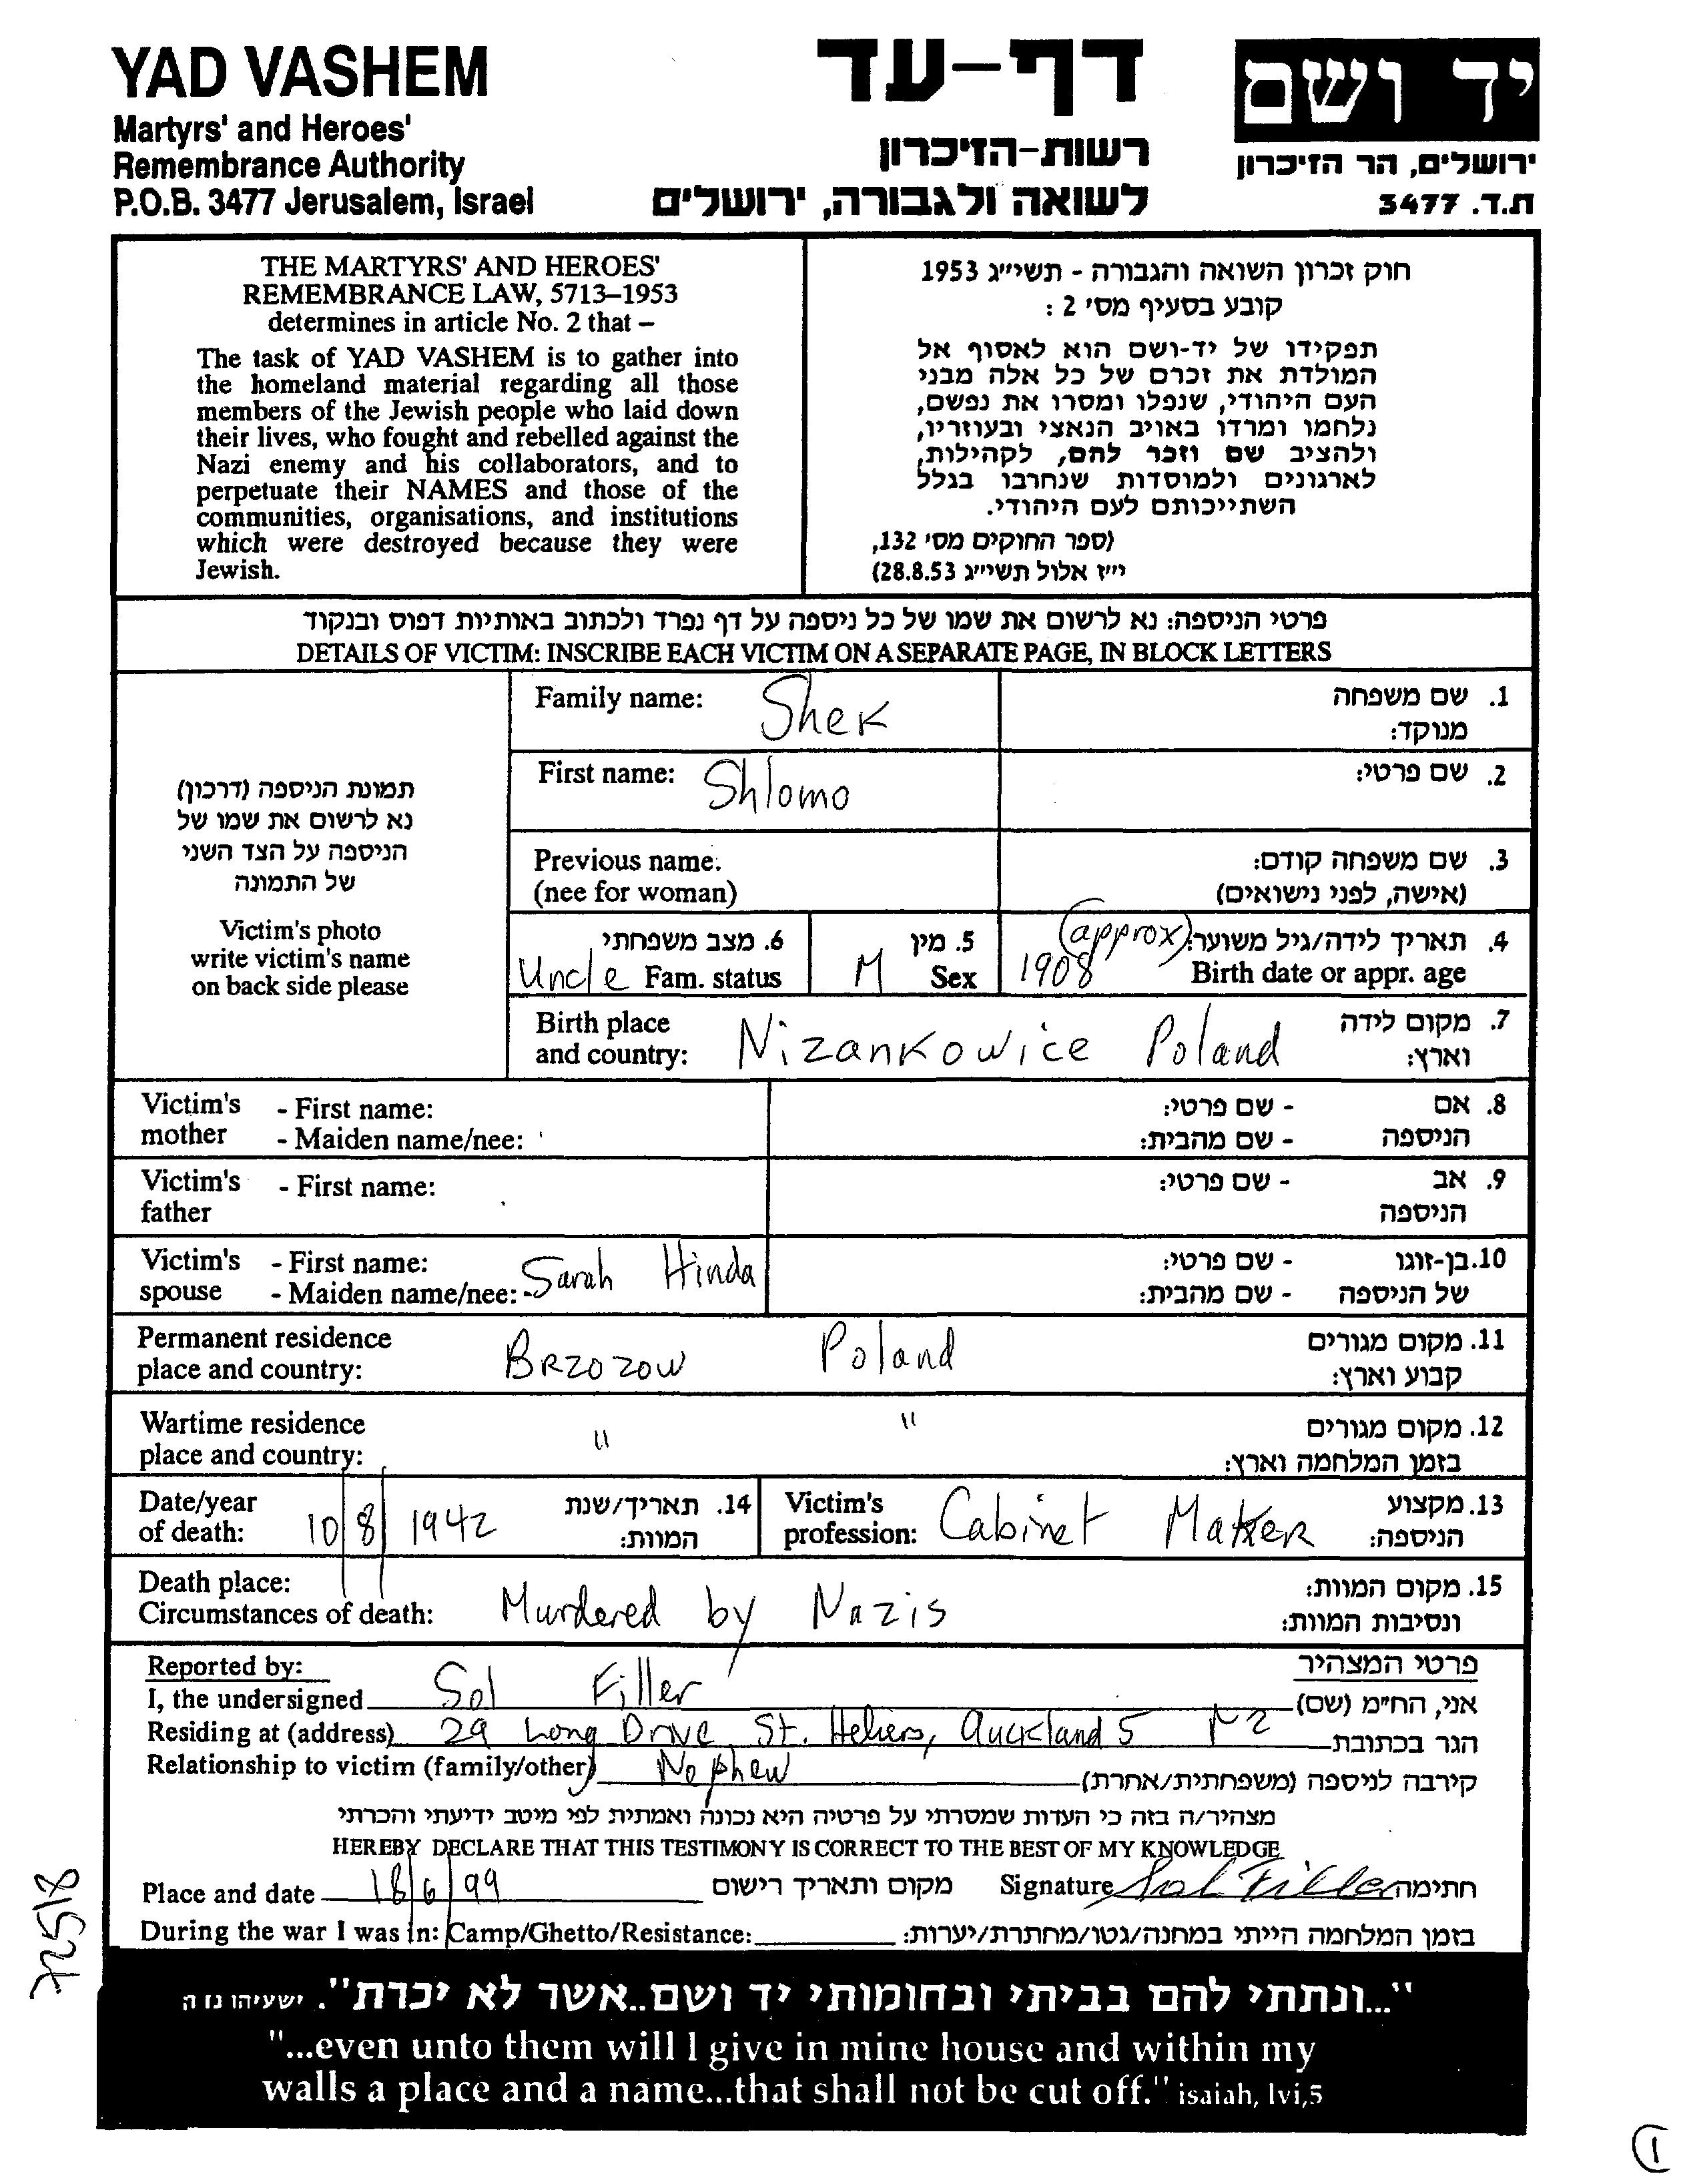 YAD VASHEM
Martyrs' and Heroes'
Remembrance Authority
P.O.B. 3477 Jerusalem, Israel
דף-עד
רשות-הזיכרון
לשואה ולגבורה, ירושלים
יד ושם
ירושלים, הר הזיכרון
ת.ד. 3477
THE MARTYRS' AND HEROES'
REMEMBRANCE LAW, 5713–1953
determines in article No. 2 that –
The task of YAD VASHEM is to gather into
the homeland material regarding all those
members of the Jewish people who laid down
their lives, who fought and rebelled against the
Nazi enemy and his collaborators, and to
perpetuate their NAMES and those of the
communities, organisations, and institutions
which were destroyed because they were
Jewish.
חוק זכרון השואה והגבורה - תשי״ג 1953
קובע בסעיף מס׳ 2 :
תפקידו של יד-ושם הוא לאסוף אל
המולדת את זכרם של כל אלה מבני
העם היהודי, שנפלו ומסרו את נפשם,
נלחמו ומרדו באויב הנאצי ובעוזריו,
ולהציב שם וזכר להם, לקהילות,
לארגונים ולמוסדות שנחרבו בגלל
השתייכותם לעם היהודי.
(ספר החוקים מס׳ 132,
י״ז אלול תשי״ג 28.8.53)
פרטי הניספה: נא לרשום את שמו של כל ניספה על דף נפרד ולכתוב באותיות דפוס ובנקוד
DETAILS OF VICTIM: INSCRIBE EACH VICTIM ON A SEPARATE PAGE, IN BLOCK LETTERS
תמונת הניספה (דרכון)
נא לרשום את שמו של
הניספה על הצד השני
של התמונה
Victim's photo
write victim's name
on back side please
Family name: Shek 1. שם משפחה
מנוקד:
First name: Shlomo 2. שם פרטי:
Previous name. 3. שם משפחה קודם:
(nee for woman) (אישה, לפני נישואים)
6. מצב משפחתי 5. מין (approx) 4. תאריך לידה/גיל משוער:
Uncle Fam. status M Sex 1908 Birth date or appr. age
Birth place 7. מקום לידה
and country: Nizankowice Poland וארץ:
Victim's - First name: - שם פרטי: 8. אם
mother - Maiden name/nee: - שם מהבית: הניספה
Victim's - First name: - שם פרטי: 9. אב
father הניספה
Victim's - First name: - שם פרטי: 10. בן-זוגו
spouse - Maiden name/nee: - Sarah Hinda - שם מהבית: של הניספה
Permanent residence 11. מקום מגורים
place and country: Brzozow Poland קבוע וארץ:
Wartime residence 12. מקום מגורים
place and country: " " בזמן המלחמה וארץ:
Date/year 14. תאריך/שנת Victim's 13. מקצוע
of death: 10/8/1942 המוות: profession: Cabinet Maker הניספה:
Death place: 15. מקום המוות:
Circumstances of death: Murdered by Nazis ונסיבות המוות:
Reported by: פרטי המצהיר
I, the undersigned Sol Filler אני, הח״מ (שם)
Residing at (address) 29 Long Drive St. Heliers, Auckland 5 NZ הגר בכתובת
Relationship to victim (family/other) Nephew קירבה לניספה (משפחתית/אחרת)
מצהיר/ה בזה כי העדות שמסרתי על פרטיה היא נכונה ואמתית לפי מיטב ידיעתי והכרתי
HEREBY DECLARE THAT THIS TESTIMONY IS CORRECT TO THE BEST OF MY KNOWLEDGE
Place and date 18/6/99 מקום ותאריך רישום Signature Sol Filler חתימה
During the war I was in: Camp/Ghetto/Resistance: בזמן המלחמה הייתי במחנה/גטו/מחתרת/יערות:
"...ונתתי להם בביתי ובחומותי יד ושם..אשר לא יכרת". ישעיהו נו ה
"...even unto them will I give in mine house and within my
walls a place and a name...that shall not be cut off." isaiah, lvi,5
1